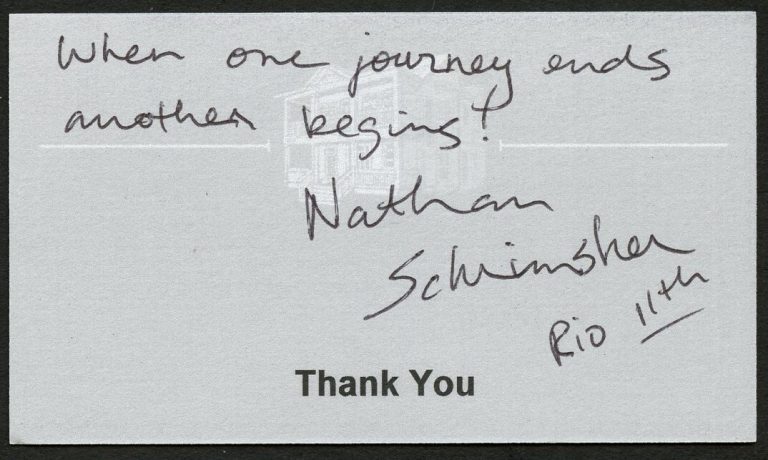 When one journey ends
another begins!
Nathan
Schrimsher
Rio 11th
Thank You